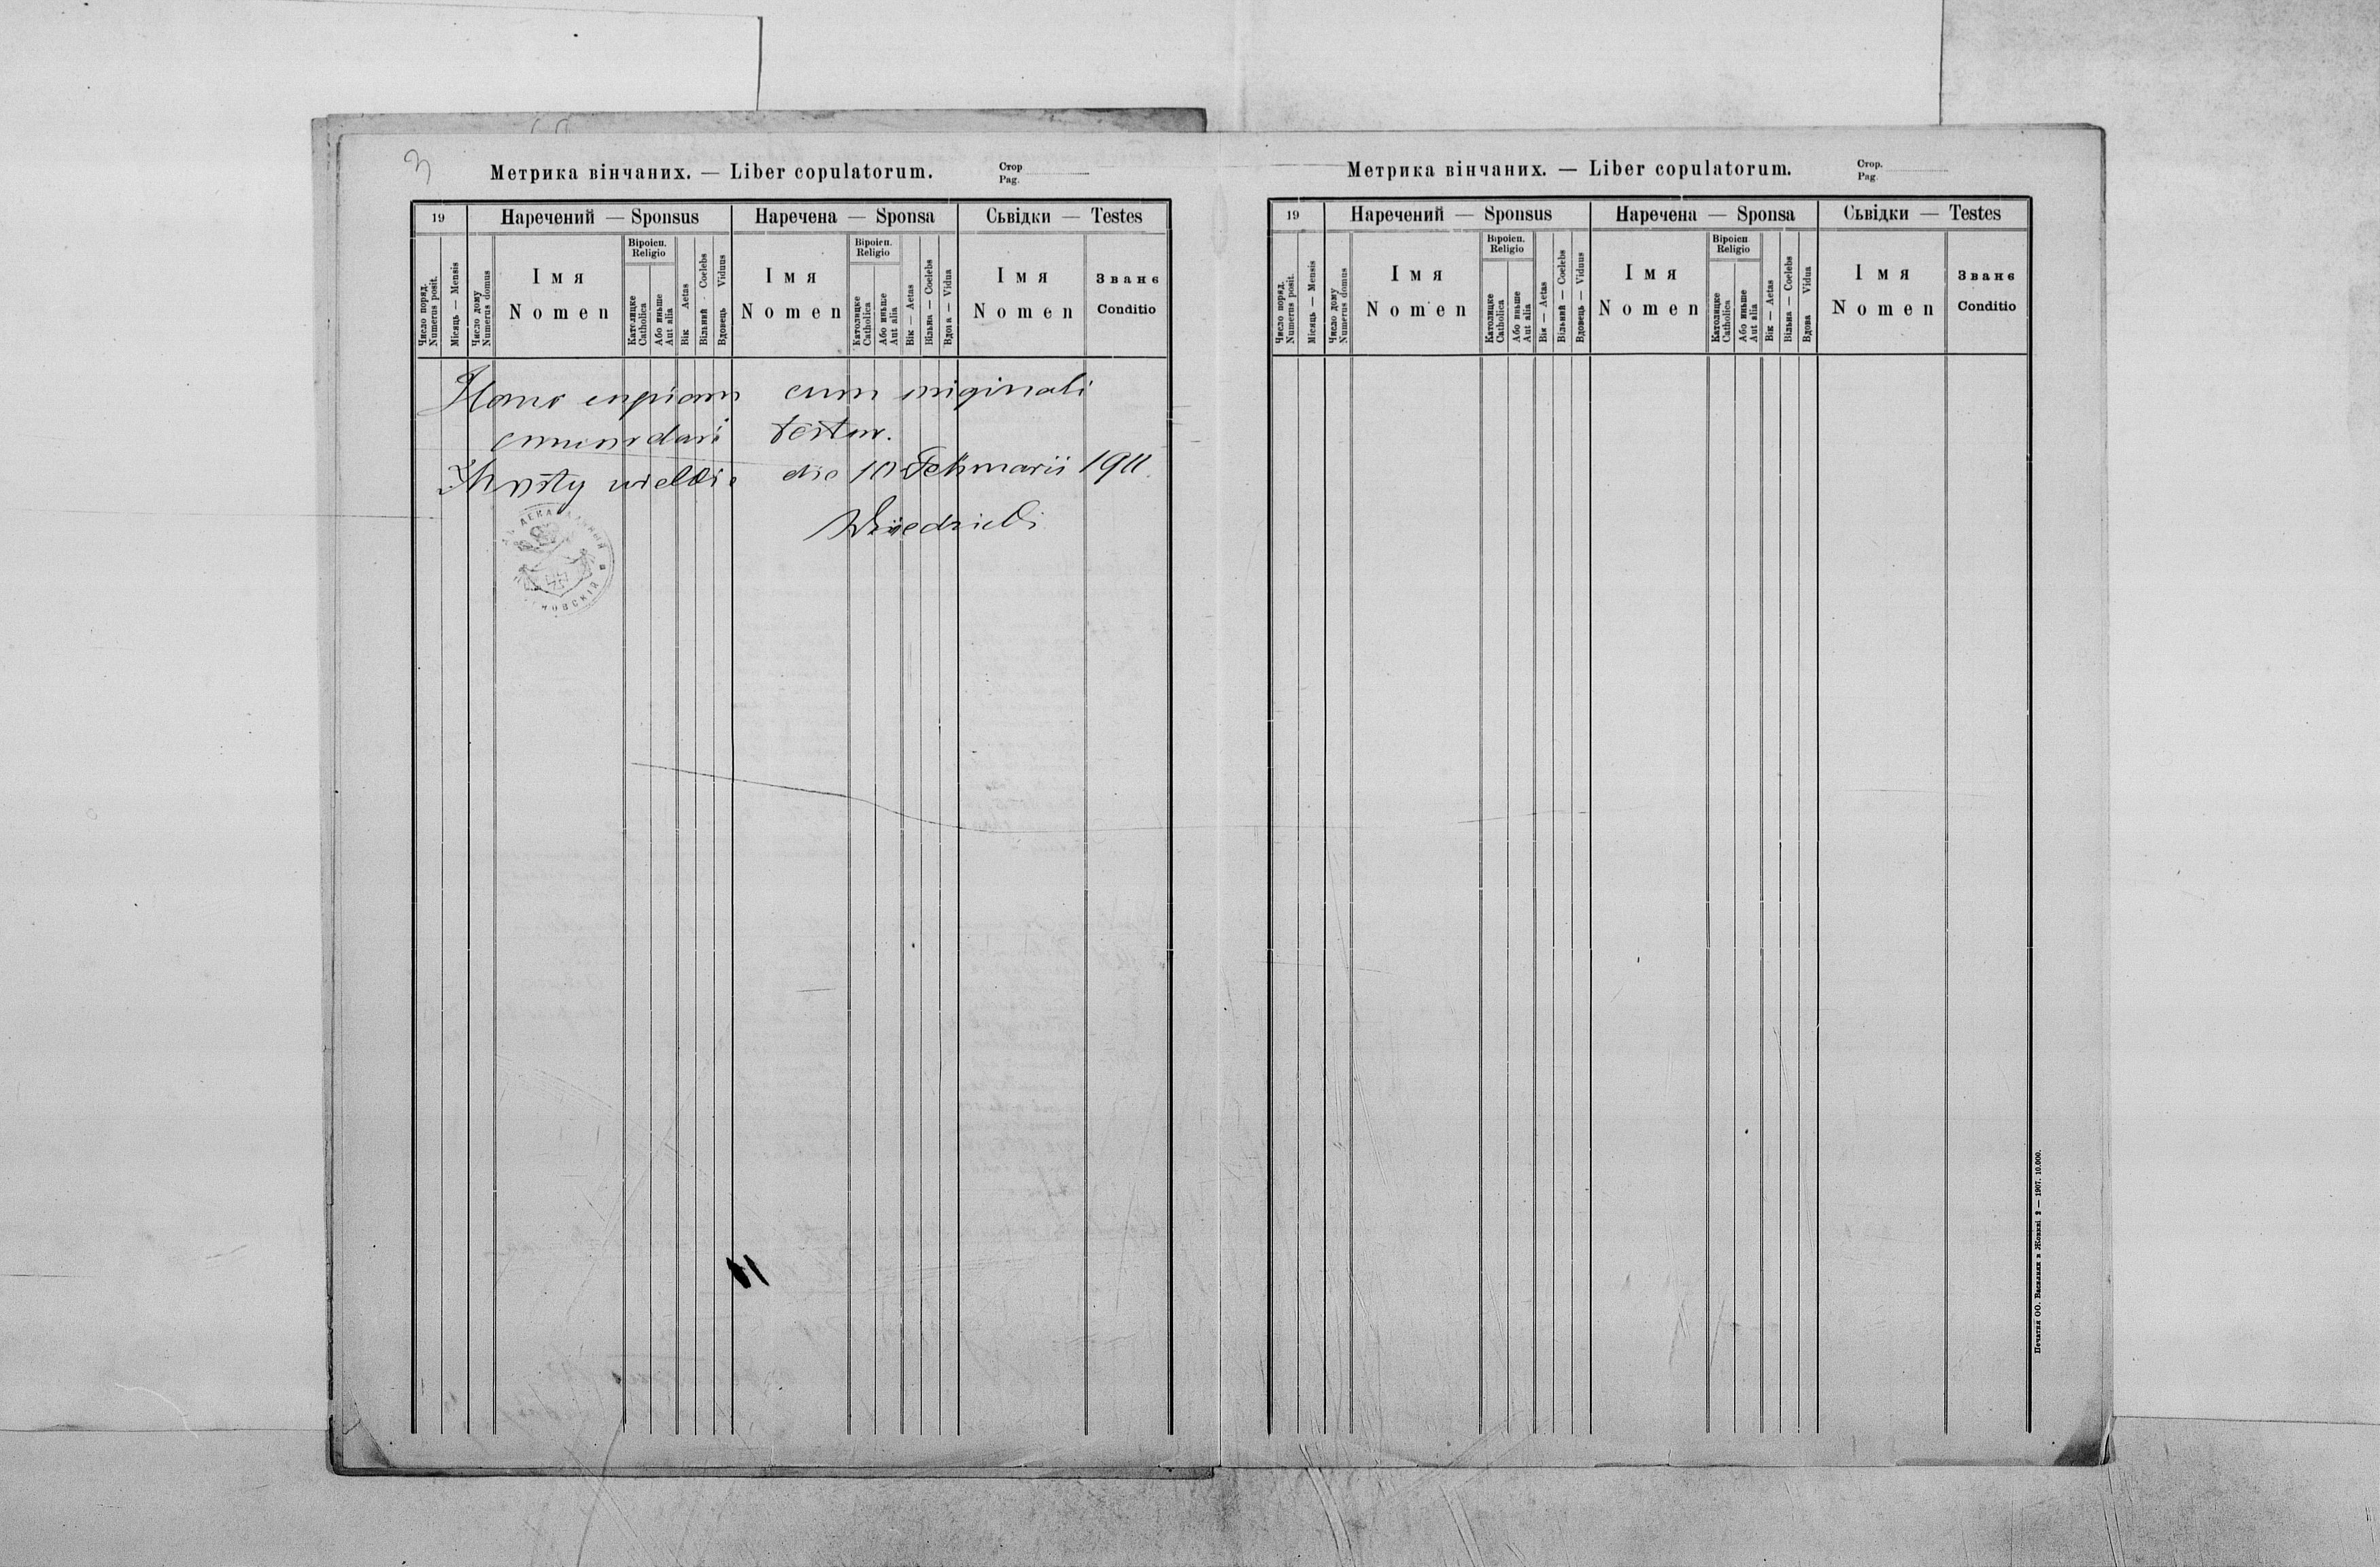 3
Метрика вінчаних. — Liber copulatorum.
Стор
Pag.
19
Наречений — Sponsus
Наречена — Sponsa
Сьвідки — Testes
Число поряд.
Numerus posit.
Місяць — Mensis
Число дому
Numerus domus
Імя
Nomen
Віроісп.
Religio
Католицке
Catholica
Або иньше
Aut alia
Вік Aetas
Вільний - Coelebs
Вдовець Viduus
Імя
Nomen
Віроісп.
Religio
Католицке
Catholica
Або иньше
Aut alia
Вік — Aetas
Вільна — Coelebs
Вдова — Vidua
Імя
Nomen
Званє
Conditio
Hanc copiam cum originali
concordare testor.
Mosty wielkie die 10 Februarii 1911.
Метрика вінчаних. — Liber copulatorum.
Стор.
Pag.
19
Наречений — Sponsus
Наречена — Sponsa
Сьвідки — Testes
Число поряд.
Numerus posit.
Місяць — Mensis
Число дому
Numerus domus
Імя
Nomen
Віроісп.
Religio
Католицке
Catholica
Або иньше
Aut alia
Вік — Aetas
Вільний — Coelebs
Вдовець — Viduus
Імя
Nomen
Віроісп
Religio
Католицке
Catholica
Або иньше
Aut alia
Вік — Aetas
Вільна — Coelebs
Вдова Vidua
Імя
Nomen
Званє
Conditio
Печатня ОО. Василиян в Жовкві 2 — 1907. 10.000.